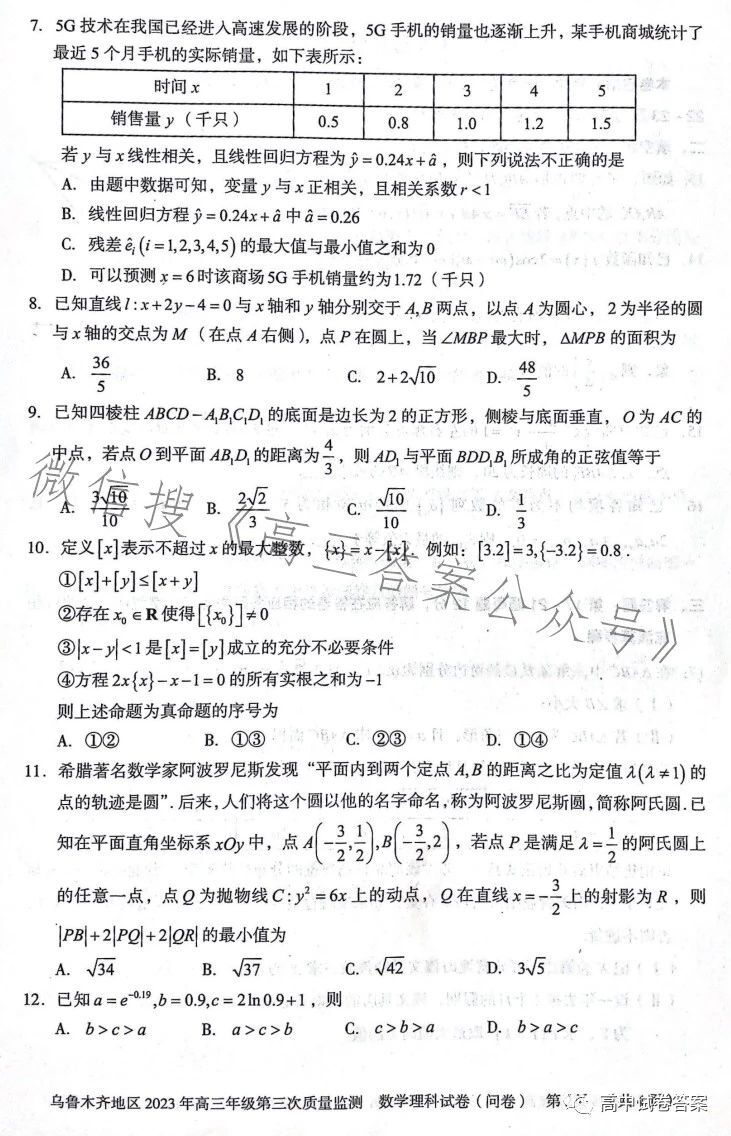 7. 5G 技术在我国已经进入高速发展的阶段，5G 手机的销量也逐渐上升，某手机商城统计了
最近 5 个月手机的实际销量，如下表所示：
时间 x 1 2 3 4 5
销售量 y（千只） 0.5 0.8 1.0 1.2 1.5
若 y 与 x 线性相关，且线性回归方程为 ŷ=0.24x+â，则下列说法不正确的是
A. 由题中数据可知，变量 y 与 x 正相关，且相关系数 r<1
B. 线性回归方程 ŷ=0.24x+â 中 â=0.26
C. 残差 êᵢ(i=1,2,3,4,5) 的最大值与最小值之和为 0
D. 可以预测 x=6 时该商场 5G 手机销量约为 1.72（千只）
8. 已知直线 l:x+2y-4=0 与 x 轴和 y 轴分别交于 A,B 两点，以点 A 为圆心，2 为半径的圆
与 x 轴的交点为 M（在点 A 右侧），点 P 在圆上，当 ∠MBP 最大时，ΔMPB 的面积为
A. 36/5 B. 8 C. 2+2√10 D. 48/5
9. 已知四棱柱 ABCD-A₁B₁C₁D₁ 的底面是边长为 2 的正方形，侧棱与底面垂直，O 为 AC 的
中点，若点 O 到平面 AB₁D₁ 的距离为 4/3，则 AD₁ 与平面 BDD₁B₁ 所成角的正弦值等于
A. 3√10/10 B. 2√2/3 C. √10/10 D. 1/3
10. 定义[x]表示不超过 x 的最大整数，{x}=x-[x]．例如：[3.2]=3,{-3.2}=0.8．
①[x]+[y]≤[x+y]
②存在 x₀∈R 使得[{x₀}]≠0
③|x-y|<1 是[x]=[y]成立的充分不必要条件
④方程 2x{x}-x-1=0 的所有实根之和为 -1
则上述命题为真命题的序号为
A. ①② B. ①③ C. ②③ D. ①④
11. 希腊著名数学家阿波罗尼斯发现“平面内到两个定点 A,B 的距离之比为定值 λ(λ≠1) 的
点的轨迹是圆”. 后来，人们将这个圆以他的名字命名，称为阿波罗尼斯圆，简称阿氏圆. 已
知在平面直角坐标系 xOy 中，点 A(-3/2,1/2),B(-3/2,2)，若点 P 是满足 λ=1/2 的阿氏圆上
的任意一点，点 Q 为抛物线 C:y²=6x 上的动点，Q 在直线 x=-3/2 上的射影为 R，则
|PB|+2|PQ|+2|QR| 的最小值为
A. √34 B. √37 C. √42 D. 3√5
12. 已知 a=e^{-0.19},b=0.9,c=2ln0.9+1，则
A. b>c>a B. a>c>b C. c>b>a D. b>a>c
微信搜《高三答案公众号》
乌鲁木齐地区 2023 年高三年级第三次质量监测 数学理科试卷（问卷） 第
高中试卷答案